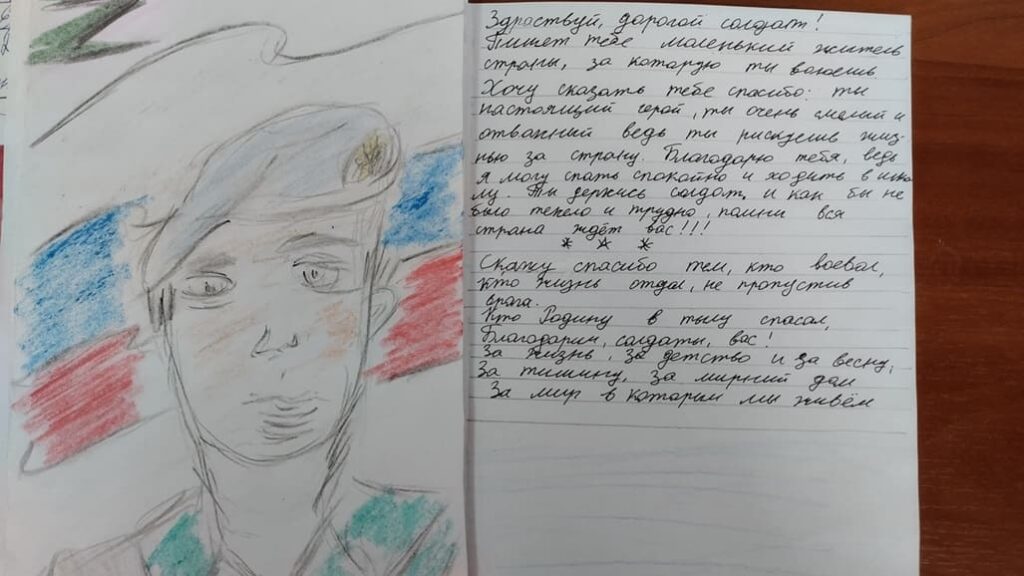 Здраствуй, дорогой солдат!
Пишет тебе маленький житель
страны, за которую ты воюешь
Хочу сказать тебе спасибо: ты
настоящий герой, ты очень смелий и
отважний ведь ты рискуешь жиз-
нью за страну. Благодарю тебя, ведь
я могу спать спокойно и ходить в шко
лу. Ти держись солдат, и как бы не
было тежело и трудно, помни вся
страна ждёт вас!!!
* * *
Скажу спасибо тем, кто воевал,
кто жизнь отдал, не пропустив
врага.
Кто Родину в тылу спасал,
Благодарим, солдаты, вас!
За жизнь, за детство и за весну,
За тишину, за мирний дом
За мир в котором ми живём